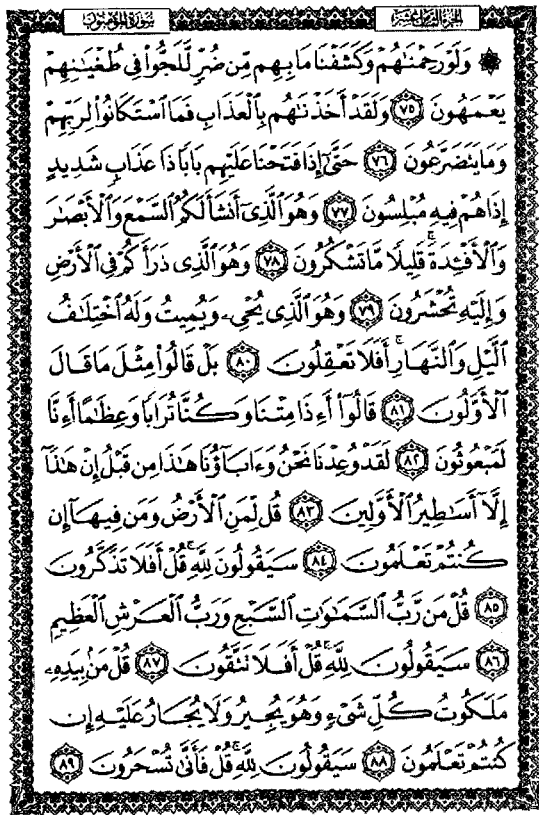 الجزء الثامن عشر
سورة المؤمنون
۞ وَلَوْ رَحِمْنَٰهُمْ وَكَشَفْنَا مَا بِهِم مِّن ضُرٍّ لَّلَجُّوا۟ فِى طُغْيَٰنِهِمْ
يَعْمَهُونَ ٧٥ وَلَقَدْ أَخَذْنَٰهُم بِٱلْعَذَابِ فَمَا ٱسْتَكَانُوا۟ لِرَبِّهِمْ
وَمَا يَتَضَرَّعُونَ ٧٦ حَتَّىٰٓ إِذَا فَتَحْنَا عَلَيْهِم بَابًا ذَا عَذَابٍ شَدِيدٍ
إِذَا هُمْ فِيهِ مُبْلِسُونَ ٧٧ وَهُوَ ٱلَّذِىٓ أَنشَأَ لَكُمُ ٱلسَّمْعَ وَٱلْأَبْصَٰرَ
وَٱلْأَفْـِٔدَةَ ۚ قَلِيلًا مَّا تَشْكُرُونَ ٧٨ وَهُوَ ٱلَّذِى ذَرَأَكُمْ فِى ٱلْأَرْضِ
وَإِلَيْهِ تُحْشَرُونَ ٧٩ وَهُوَ ٱلَّذِى يُحْىِۦ وَيُمِيتُ وَلَهُ ٱخْتِلَٰفُ
ٱلَّيْلِ وَٱلنَّهَارِ ۚ أَفَلَا تَعْقِلُونَ ٨٠ بَلْ قَالُوا۟ مِثْلَ مَا قَالَ
ٱلْأَوَّلُونَ ٨١ قَالُوٓا۟ أَءِذَا مِتْنَا وَكُنَّا تُرَابًا وَعِظَٰمًا أَءِنَّا
لَمَبْعُوثُونَ ٨٢ لَقَدْ وُعِدْنَا نَحْنُ وَءَابَآؤُنَا هَٰذَا مِن قَبْلُ إِنْ هَٰذَآ
إِلَّآ أَسَٰطِيرُ ٱلْأَوَّلِينَ ٨٣ قُل لِّمَنِ ٱلْأَرْضُ وَمَن فِيهَآ إِن
كُنتُمْ تَعْلَمُونَ ٨٤ سَيَقُولُونَ لِلَّهِ ۚ قُلْ أَفَلَا تَذَكَّرُونَ
٨٥ قُلْ مَن رَّبُّ ٱلسَّمَٰوَٰتِ ٱلسَّبْعِ وَرَبُّ ٱلْعَرْشِ ٱلْعَظِيمِ
٨٦ سَيَقُولُونَ لِلَّهِ ۚ قُلْ أَفَلَا تَتَّقُونَ ٨٧ قُلْ مَنۢ بِيَدِهِۦ
مَلَكُوتُ كُلِّ شَىْءٍ وَهُوَ يُجِيرُ وَلَا يُجَارُ عَلَيْهِ إِن
كُنتُمْ تَعْلَمُونَ ٨٨ سَيَقُولُونَ لِلَّهِ ۚ قُلْ فَأَنَّىٰ تُسْحَرُونَ ٨٩